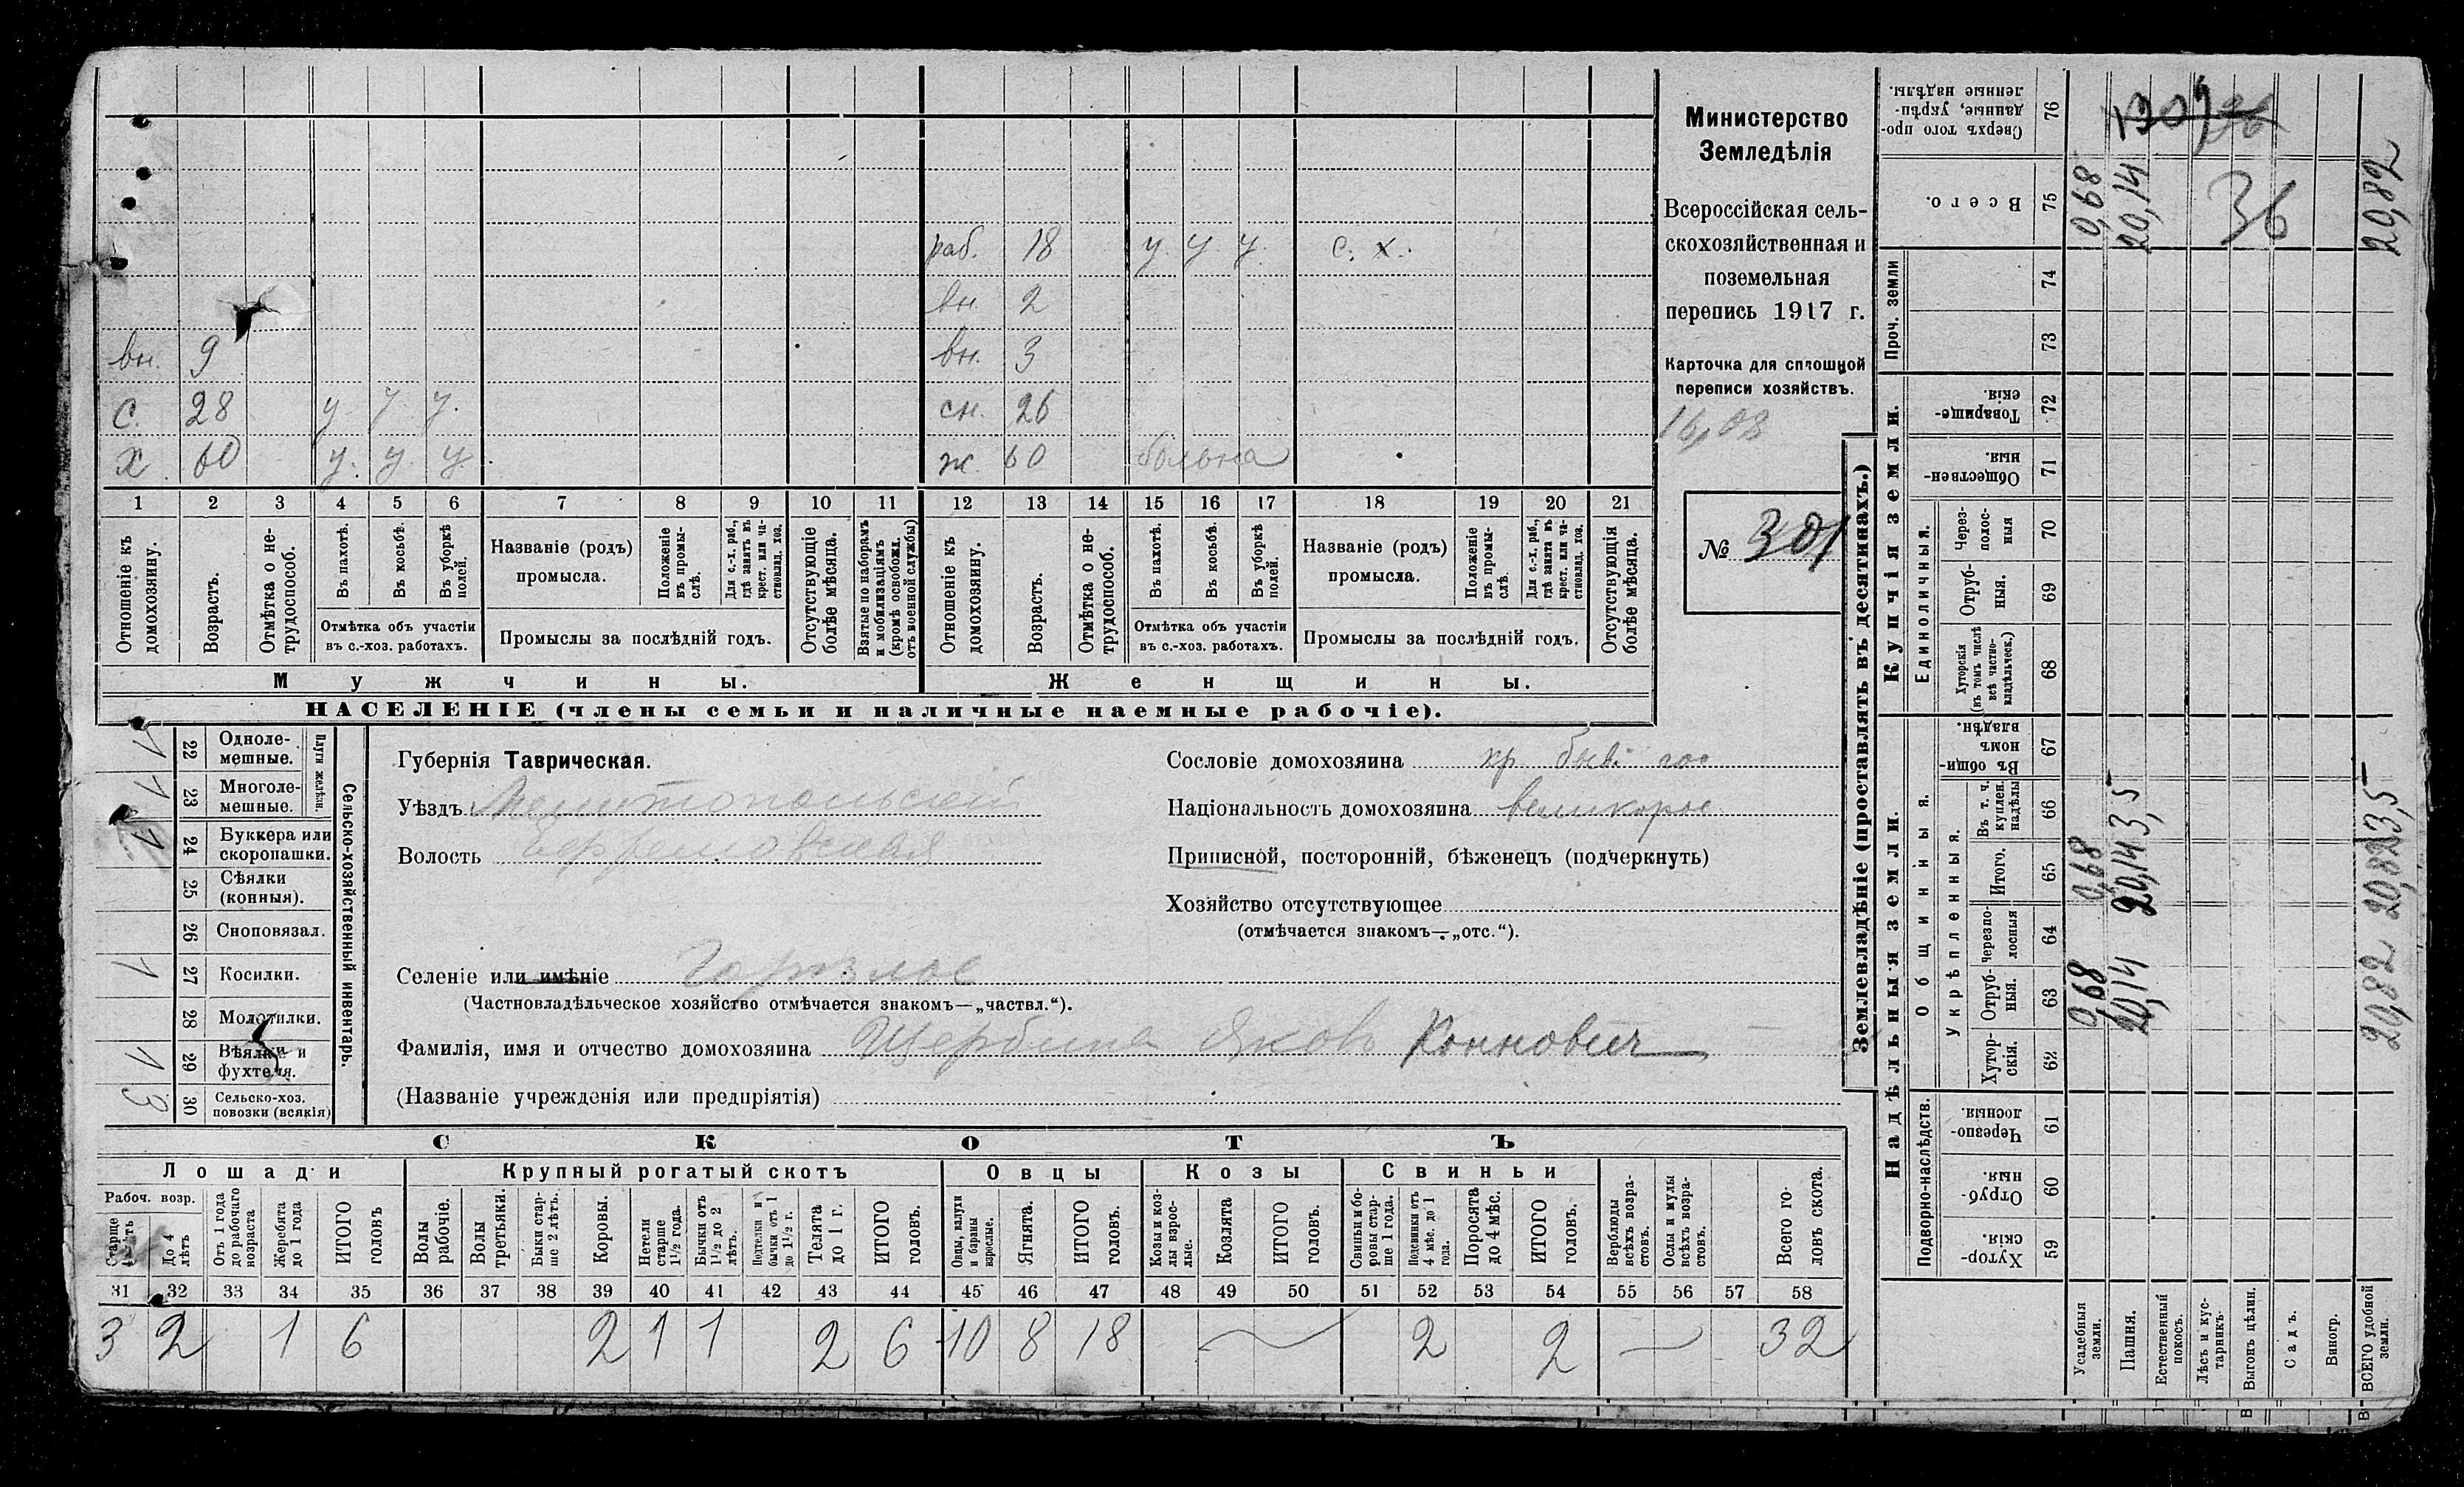 Министерство
Земледѣлія
Всероссійская сель-
скохозяйственная и
поземельная
перепись 1917 г.
Карточка для сплошной
переписи хозяйствъ.
16,08
№ 301
раб. 18 у. у. у. с. х.
вн. 2
вн. 9 вн. 3
с. 28 у. у. у. сн. 26
х 60 у. у. у. ж. 60 больна
1 2 3 4 5 6 7 8 9 10 11 12 13 14 15 16 17 18 19 20 21
Отношеніе къ домохозяину.
Возрастъ.
Отмѣтка о не-трудоспособ.
Въ пахотѣ.
Въ косьбѣ.
Въ уборкѣ полей.
Отмѣтка объ участіи
въ с.-хоз. работахъ.
Названіе (родъ)
промысла.
Положеніе въ промы-слѣ.
Для с.-х. раб., гдѣ занятъ въ крест. или ча-стновлад. хоз.
Промыслы за послѣдній годъ.
Отсутствующіе болѣе мѣсяца.
Взятые по наборамъ и мобилизаціямъ (кромѣ освобожд. отъ военной службы)
Отношеніе къ домохозяину.
Возрастъ.
Отмѣтка о не-трудоспособ.
Въ пахотѣ.
Въ косьбѣ.
Въ уборкѣ полей.
Отмѣтка объ участіи
въ с.-хоз. работахъ.
Названіе (родъ)
промысла.
Положеніе въ промы-слѣ.
Для с.-х. раб., гдѣ занята въ крест. или ча-стновлад. хоз.
Промыслы за послѣдній годъ.
Отсутствующія болѣе мѣсяца.
Мужчины. Женщины.
НАСЕЛЕНІЕ (члены семьи и наличные наемные рабочіе).
Сельско-хозяйственный инвентарь.
Плуги желѣзн.
1 22 Одноле-мешные.
1 23 Многоле-мешные.
1 24 Буккера или скоропашки.
25 Сѣялки (конныя).
26 Сноповязал.
1 27 Косилки.
28 Молотилки.
1 29 Вѣялки и фухтеля.
3 30 Сельско-хоз. повозки (всякія)
Губернія Таврическая.
Уѣздъ Мелитопольскій
Волость
Селеніе или имѣніе Горѣлое
(Частновладѣльческое хозяйство отмѣчается знакомъ—„частвл.“).
Фамилія, имя и отчество домохозяина Щербина Яковъ Кононович
(Названіе учрежденія или предпріятія)
Сословіе домохозяина кр быв. гос
Національность домохозяина великорос.
Приписной, посторонній, бѣженецъ (подчеркнуть)
Хозяйство отсутствующее
(отмѣчается знакомъ—„отс.“).
СКОТЪ
Лошади Крупный рогатый скотъ Овцы Козы Свиньи
Рабоч. возр.
Старше 4 лѣтъ
До 4 лѣтъ
Отъ 1 года до рабочаго возраста
Жеребята до 1 года
ИТОГО головъ
Волы рабочіе.
Волы третьяки.
Быки стар-ше 2 лѣтъ.
Коровы.
Нетели старше 1½ года.
Бычки отъ 1½ до 2 лѣтъ.
Подтелки и бычки отъ 1 до 1½ г.
Телята до 1 г.
ИТОГО головъ.
Овцы, валухи и бараны взрослые.
Ягнята.
ИТОГО головъ.
Козы и коз-лы взрос-лые.
Козлята
ИТОГО головъ.
Свиньи и бо-ровы стар-ше 1 года.
Подсвинки отъ 4 мѣс. до 1 года.
Поросята до 4 мѣс.
ИТОГО головъ.
Верблюды всѣхъ возра-стовъ.
Ослы и мулы всѣхъ возра-стовъ.
Всего го-ловъ скота.
31 32 33 34 35 36 37 38 39 40 41 42 43 44 45 46 47 48 49 50 51 52 53 54 55 56 57 58
3 2 1 6 2 1 1 2 6 10 8 18 — 2 2 — 32
Землевладѣніе (проставлять въ десятинахъ.)
Надѣльныя земли. Купчія земли. Проч. земли
Подворно-наслѣдств.
Общинныя.
Укрѣпленныя.
Единоличныя.
Сверхъ того про-данные, укрѣп-ленные надѣлы. 76
Всего. 75 0,68 20,14 36 20,82
74
73
Товарище-скія. 72
Обществен-ныя. 71
Через-полос-ныя 70
Отруб-ныя. 69
Хуторскія (въ томъ числѣ всѣ частно-владѣльческ.) 68
Въ общи-номъ владѣн. 67
Въ т. ч. куплен. надѣлы 66 3,5 3,5
Итого. 65 0,68 20,14 20,82
Черезпо-лосныя 64
Отруб-ныя. 63 0,68 20,14 20,82
Хутор-скія. 62
Черезпо-лосныя. 61
Отруб-ныя. 60
Хутор-скія. 59
Усадебныя земли.
Пашня.
Естественный покосъ.
Лѣсъ и кус-тарникъ.
Выгонъ цѣлин.
Садъ.
Виногр.
ВСЕГО удобной земли.